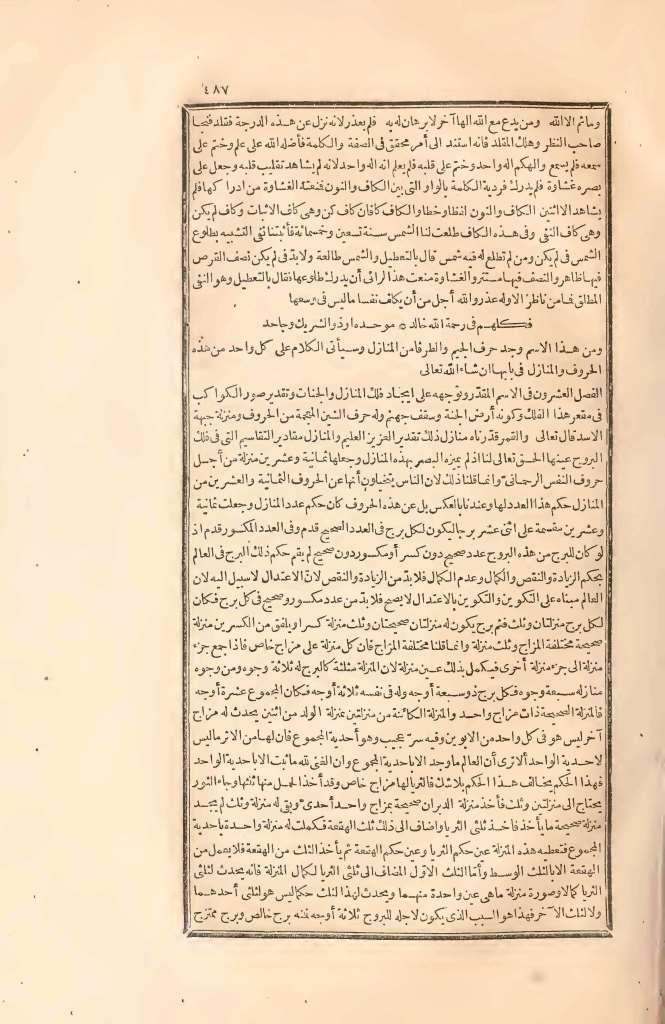 ٤٨٧
وما ثم الا الله ومن يدع مع الله الها آخر لا برهان له به فلم يعذر لانه نزل عن هذه الدرجة فقلد فنجا
صاحب النظر وهلك المقلد فانه استند الى أمر محقق فى الصفة والكلمة فأضله الله على علم وختم على
سمعه فلم يسمع والهكم اله واحد وختم على قلبه فلم يعلم انه اله واحد لانه لم يشاهد تقليب قلبه وجعل على
بصره غشاوة فلم يدرك فردية الكلمة بالواو التى بين الكاف والنون فنعته الغشاوة من ادراكها فلم
يشاهد الا اثنين الكاف والنون لفظا وخطا والكاف كافان كاف كن وهى كاف الاثبات وكاف لم يكن
وهى كاف النفى وفى هذه الكاف طلعت لنا الشمس سنة تسعين وخمسمائة فأثبتنا نفى التشبيه بطلوع
الشمس فى لم يكن ومن لم تطلع له فيه شمس قال بالتعطيل والشمس طالعة ولا بد فى لم يكن نصف القرص
فيها ظاهر والنصف فيها مستتر والغشاوة منعت هذا الرائى أن يدرك طلوعها فقال بالتعطيل وهو النفى
المطلق فما من ناظر الا وله عذر والله أجل من أن يكلف نفسا ما ليس فى وسعها
فكلهم فى رحمة الله خالد ۞ موحده او ذو الشريك وجاحد
ومن هذا الاسم وجد حرف الجيم والطرفا من المنازل وسيأتى الكلام على كل واحد من هذه
الحروف والمنازل فى بابها ان شاء الله تعالى
الفصل العشرون فى الاسم المقدر وتوجهه على ايجاد فلك المنازل والجنات وتقدير صور الكواكب
فى مقعر هذا الفلك وكونه أرض الجنة وسقف جهنم وله حرف الشين المعجمة من الحروف ومنزلة جبهة
الاسد قال تعالى والقمر قدرناه منازل ذلك تقدير العزيز العليم والمنازل مقادير التقاسيم التى فى فلك
البروج عينها الحق تعالى لنا اذ لم يميزه البصر بهذه المنازل وجعلها ثمانية وعشرين منزلة من أجل
حروف النفس الرحمانى وانما قلنا ذلك لان الناس يتخيلون أنها عن الحروف الثمانية والعشرين من
المنازل حكم هذا العدد لها وعندنا بالعكس بل عن هذه الحروف كان حكم عدد المنازل وجعلت ثمانية
وعشرين مقسمة على اثنى عشر برجا ليكون لكل برج فى العدد الصحيح قدم وفى العدد المكسور قدم اذ
لو كان للبرج من هذه البروج عدد صحيح دون كسر أو مكسور دون صحيح لم يقم حكم ذلك البرج فى العالم
بحكم الزيادة والنقص والكمال وعدم الكمال فلا بد من الزيادة والنقص لان الاعتدال لا سبيل اليه لان
العالم مبناه على التكوين والتكوين بالاعتدال لا يصح فلا بد من عدد مكسور وصحيح فى كل برج فكان
لكل برج منزلتان وثلث فثم برج يكون له منزلتان صحيحتان وثلث منزلة كسرا ويلفق من الكسرين منزلة
صحيحة مختلفة المزاج وثلث منزلة وانما قلنا مختلفة المزاج فان كل منزلة على مزاج خاص فاذا جمع جزء
منزلة الى جزء منزلة أخرى فيكمل بذلك عين منزلة لان المنزلة مثلثة كالبرج له ثلاثة وجوه ومن وجوه
منازله سبعة وجوه فكل برج ذو سبعة أوجه وله فى نفسه ثلاثة أوجه فكان المجموع عشرة أوجه
فالمنزلة الصحيحة ذات مزاج واحد والمنزلة الكائنة من منزلتين بمنزلة الولد من اثنين يحدث له مزاج
آخر ليس هو فى كل واحد من الابوين وفيه سر عجيب وهو أحدية المجموع فان لها من الاثر ما ليس
لاحدية الواحد ألا ترى أن العالم ما وجد الا باحدية المجموع وان الغنى لله ما ثبت الا باحدية الواحد
فهذا الحكم يخالف هذا الحكم بلا شك فالثريا لها مزاج خاص وقد أخذ الحمل منها ثلثها وجاء الثور
يحتاج الى منزلتين وثلث فأخذ منزلة الدبران صحيحة بمزاج واحد أحدى وبقى له منزلة وثلث لم يجد
منزلة صحيحة ما يأخذ فاخذ ثلثى الثريا واضاف الى ذلك ثلث الهقعة فكملت له منزلة واحدة باحدية
المجموع فتعطيه هذه المنزلة عين حكم الثريا وعين حكم الهقعة ثم يأخذ الثلث من الهقعة فلا يعمل من
الهقعة الا بالثلث الوسط وأما الثلث الاول المضاف الى ثلثى الثريا لكمال المنزلة فانه يحدث لثلثى
الثريا كمالا وصورة منزلة ما هى عين واحدة منهما ويحدث لهذا الثلث حكما ليس هو لثلثى أحدهما
ولا لثلث الآخر فهذا هو السبب الذى يكون لاجله للبروج ثلاثة أوجه فمنه برج خالص وبرج ممتزج